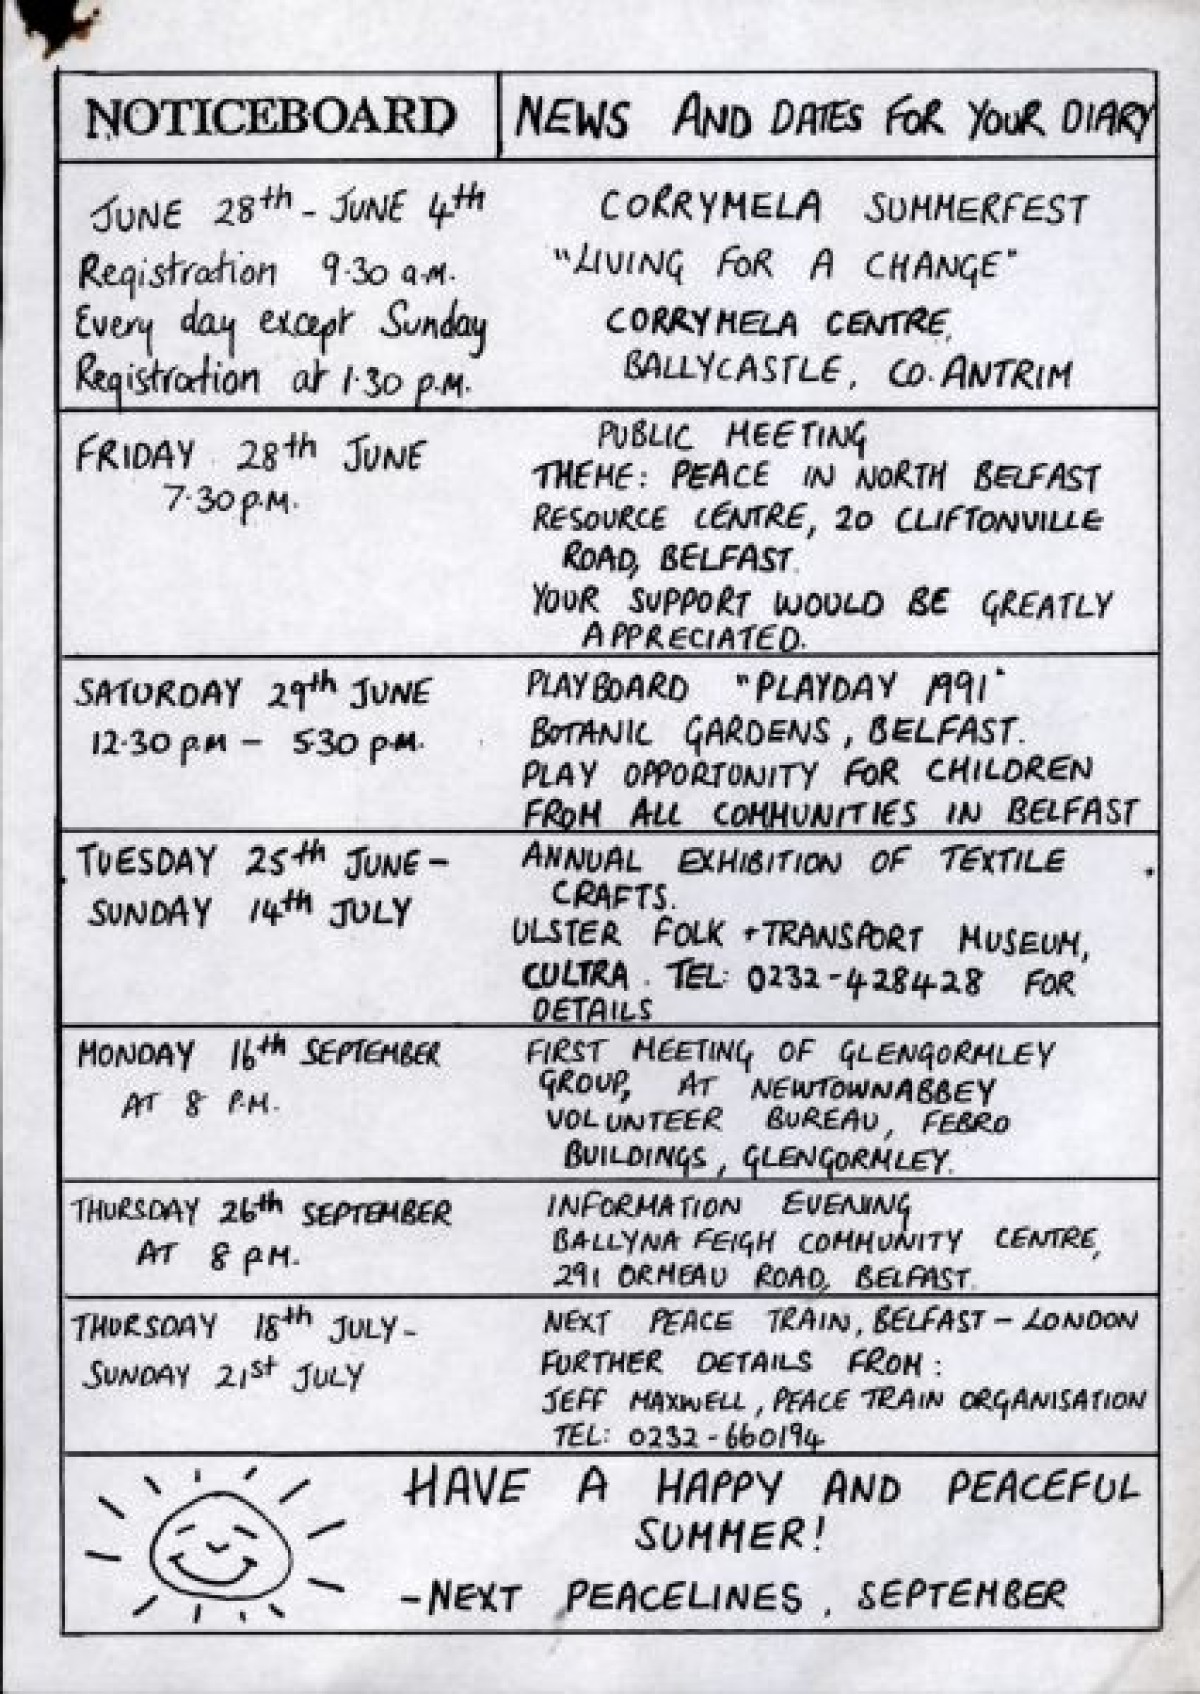 NOTICEBOARD
NEWS AND DATES FOR YOUR DIARY
JUNE 28th - JUNE 4th
Registration 9.30 a.m.
Every day except Sunday
Registration at 1.30 p.m.
CORRYMELA SUMMERFEST
"LIVING FOR A CHANGE"
CORRYMELA CENTRE,
BALLYCASTLE, CO. ANTRIM
FRIDAY 28th JUNE
7.30 p.m.
PUBLIC MEETING
THEME: PEACE IN NORTH BELFAST
RESOURCE CENTRE, 20 CLIFTONVILLE
ROAD, BELFAST.
YOUR SUPPORT WOULD BE GREATLY
APPRECIATED.
SATURDAY 29th JUNE
12.30 pm - 5.30 p.m.
PLAYBOARD "PLAYDAY 1991"
BOTANIC GARDENS, BELFAST.
PLAY OPPORTUNITY FOR CHILDREN
FROM ALL COMMUNITIES IN BELFAST
TUESDAY 25th JUNE -
SUNDAY 14th JULY
ANNUAL EXHIBITION OF TEXTILE
CRAFTS.
ULSTER FOLK + TRANSPORT MUSEUM,
CULTRA. TEL: 0232-428428 FOR
DETAILS
MONDAY 16th SEPTEMBER
AT 8 P.M.
FIRST MEETING OF GLENGORMLEY
GROUP, AT NEWTOWNABBEY
VOLUNTEER BUREAU, FEBRO
BUILDINGS, GLENGORMLEY.
THURSDAY 26th SEPTEMBER
AT 8 pm.
INFORMATION EVENING
BALLYNAFEIGH COMMUNITY CENTRE,
291 ORMEAU ROAD, BELFAST.
THURSDAY 18th JULY -
SUNDAY 21st JULY
NEXT PEACE TRAIN, BELFAST - LONDON
FURTHER DETAILS FROM:
JEFF MAXWELL, PEACE TRAIN ORGANISATION
TEL: 0232-660194
HAVE A HAPPY AND PEACEFUL
SUMMER!
- NEXT PEACELINES, SEPTEMBER